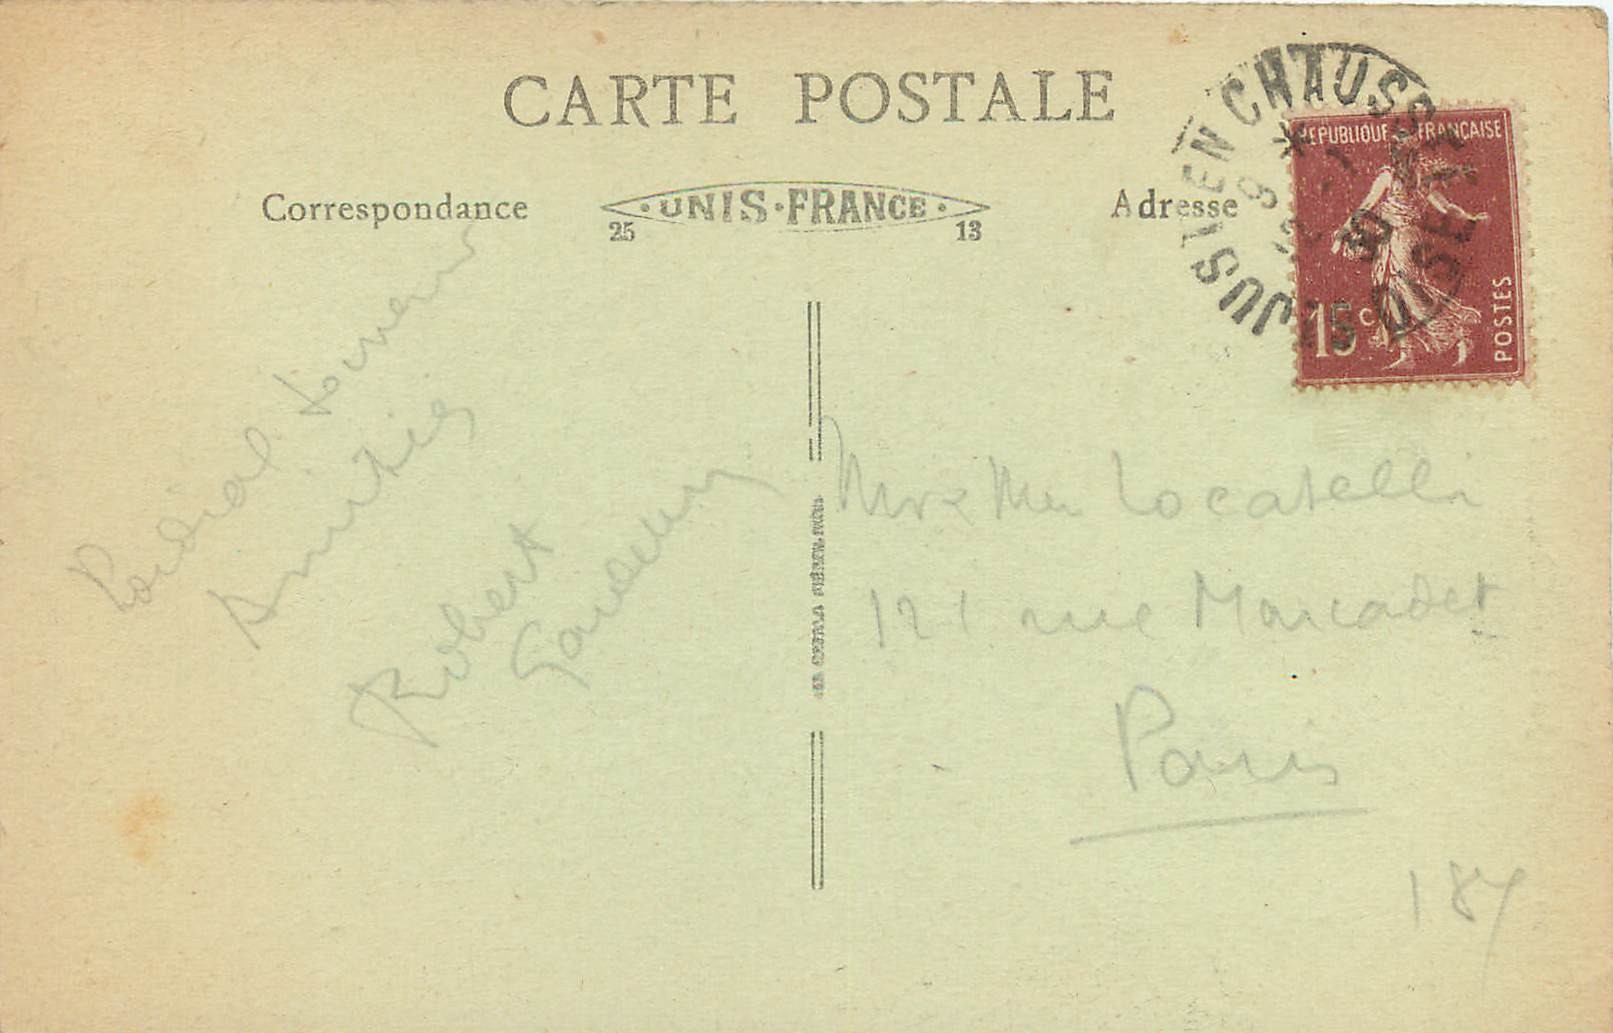 CARTE POSTALE
Correspondance
UNIS·FRANCE
25 13
Adresse
ST JUST EN CHAUSSÉE OISE
30
REPUBLIQUE FRANÇAISE
15c
POSTES
Cordial souvenir
Amitiés
Robert
Locatelli
121 rue Marcadet
Paris
187